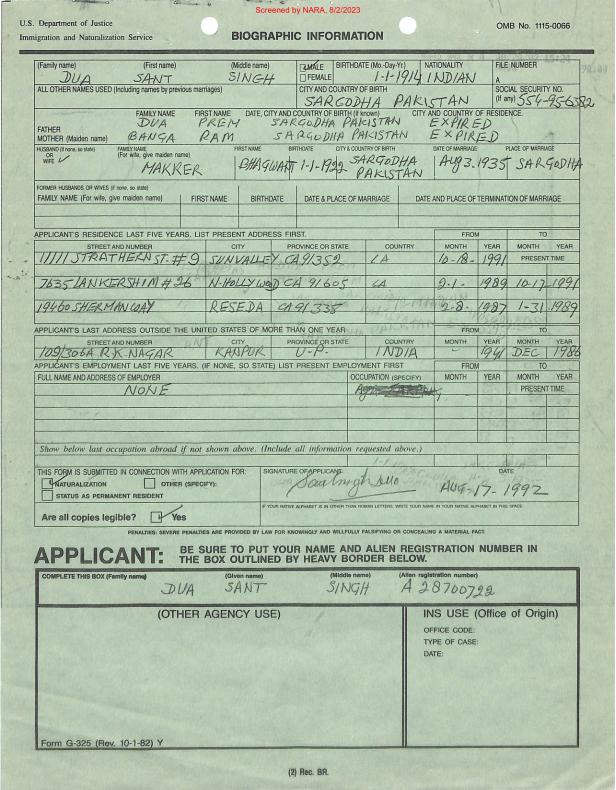 Screened by NARA, 8/2/2023
U.S. Department of Justice
Immigration and Naturalization Service
BIOGRAPHIC INFORMATION
OMB No. 1115-0066
(Family name) (First name) (Middle name) MALE FEMALE BIRTHDATE (Mo.-Day-Yr.) NATIONALITY FILE NUMBER
DUA SANT SINGH 1-1-1914 INDIAN A
ALL OTHER NAMES USED (Including names by previous marriages) CITY AND COUNTRY OF BIRTH SOCIAL SECURITY NO. (If any)
SARGODHA PAKISTAN
FAMILY NAME FIRST NAME DATE, CITY AND COUNTRY OF BIRTH (If known) CITY AND COUNTRY OF RESIDENCE.
FATHER DUA PREM SARGODHA PAKISTAN EXPIRED
MOTHER (Maiden name) BANGA RAM SARGODHA PAKISTAN EXPIRED
HUSBAND (If none, so state) OR WIFE ✓ FAMILY NAME (For wife, give maiden name) FIRST NAME BIRTHDATE CITY & COUNTRY OF BIRTH DATE OF MARRIAGE PLACE OF MARRIAGE
MAKKER BHAGWANT 1-1-1922 SARGODHA PAKISTAN Aug 3.1935 SARGODHA
FORMER HUSBANDS OR WIVES (if none, so state)
FAMILY NAME (For wife, give maiden name) FIRST NAME BIRTHDATE DATE & PLACE OF MARRIAGE DATE AND PLACE OF TERMINATION OF MARRIAGE
APPLICANT'S RESIDENCE LAST FIVE YEARS. LIST PRESENT ADDRESS FIRST. FROM TO
STREET AND NUMBER CITY PROVINCE OR STATE COUNTRY MONTH YEAR MONTH YEAR
11111 STRATHERN ST. #9 SUNVALLEY CA 91352 LA 10-18- 1991 PRESENT TIME
7635 LANKERSHIM #26 N-HOLLYWOOD CA 91605 CA 2-1- 1989 10-17-1991
19460 SHERMAN WAY RESEDA CA 91335 2-8- 1987 1-31-1989
APPLICANT'S LAST ADDRESS OUTSIDE THE UNITED STATES OF MORE THAN ONE YEAR FROM TO
STREET AND NUMBER CITY PROVINCE OR STATE COUNTRY MONTH YEAR MONTH YEAR
109/306A R.K. NAGAR KANPUR U-P- INDIA - 1941 DEC 1986
APPLICANT'S EMPLOYMENT LAST FIVE YEARS. (IF NONE, SO STATE) LIST PRESENT EMPLOYMENT FIRST FROM TO
FULL NAME AND ADDRESS OF EMPLOYER OCCUPATION (SPECIFY) MONTH YEAR MONTH YEAR
NONE PRESENT TIME
Show below last occupation abroad if not shown above. (Include all information requested above.)
THIS FORM IS SUBMITTED IN CONNECTION WITH APPLICATION FOR: SIGNATURE OF APPLICANT DATE
NATURALIZATION OTHER (SPECIFY):
STATUS AS PERMANENT RESIDENT
AUG-17-1992
IF YOUR NATIVE ALPHABET IS IN OTHER THAN ROMAN LETTERS, WRITE YOUR NAME IN YOUR NATIVE ALPHABET IN THIS SPACE.
Are all copies legible? ✓ Yes
PENALTIES: SEVERE PENALTIES ARE PROVIDED BY LAW FOR KNOWINGLY AND WILLFULLY FALSIFYING OR CONCEALING A MATERIAL FACT.
APPLICANT: BE SURE TO PUT YOUR NAME AND ALIEN REGISTRATION NUMBER IN
THE BOX OUTLINED BY HEAVY BORDER BELOW.
COMPLETE THIS BOX (Family name) (Given name) (Middle name) (Alien registration number)
DUA SANT SINGH A 28700722
(OTHER AGENCY USE) INS USE (Office of Origin)
OFFICE CODE:
TYPE OF CASE:
DATE:
Form G-325 (Rev. 10-1-82) Y
(2) Rec. BR.